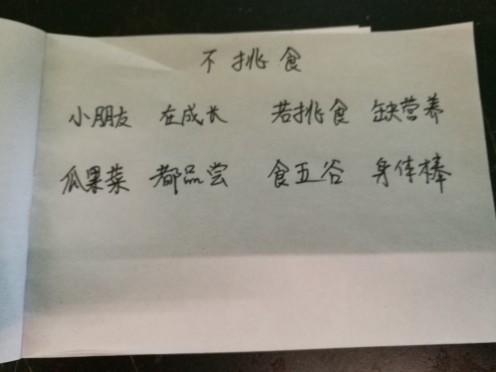 不挑食
小朋友 在成长 若挑食 缺营养
瓜果菜 都品尝 食五谷 身体棒